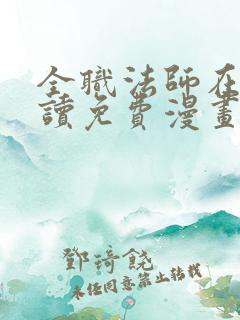 全職法師在
讀免費漫畫
鄧琦饒
未經同意禁止轉載